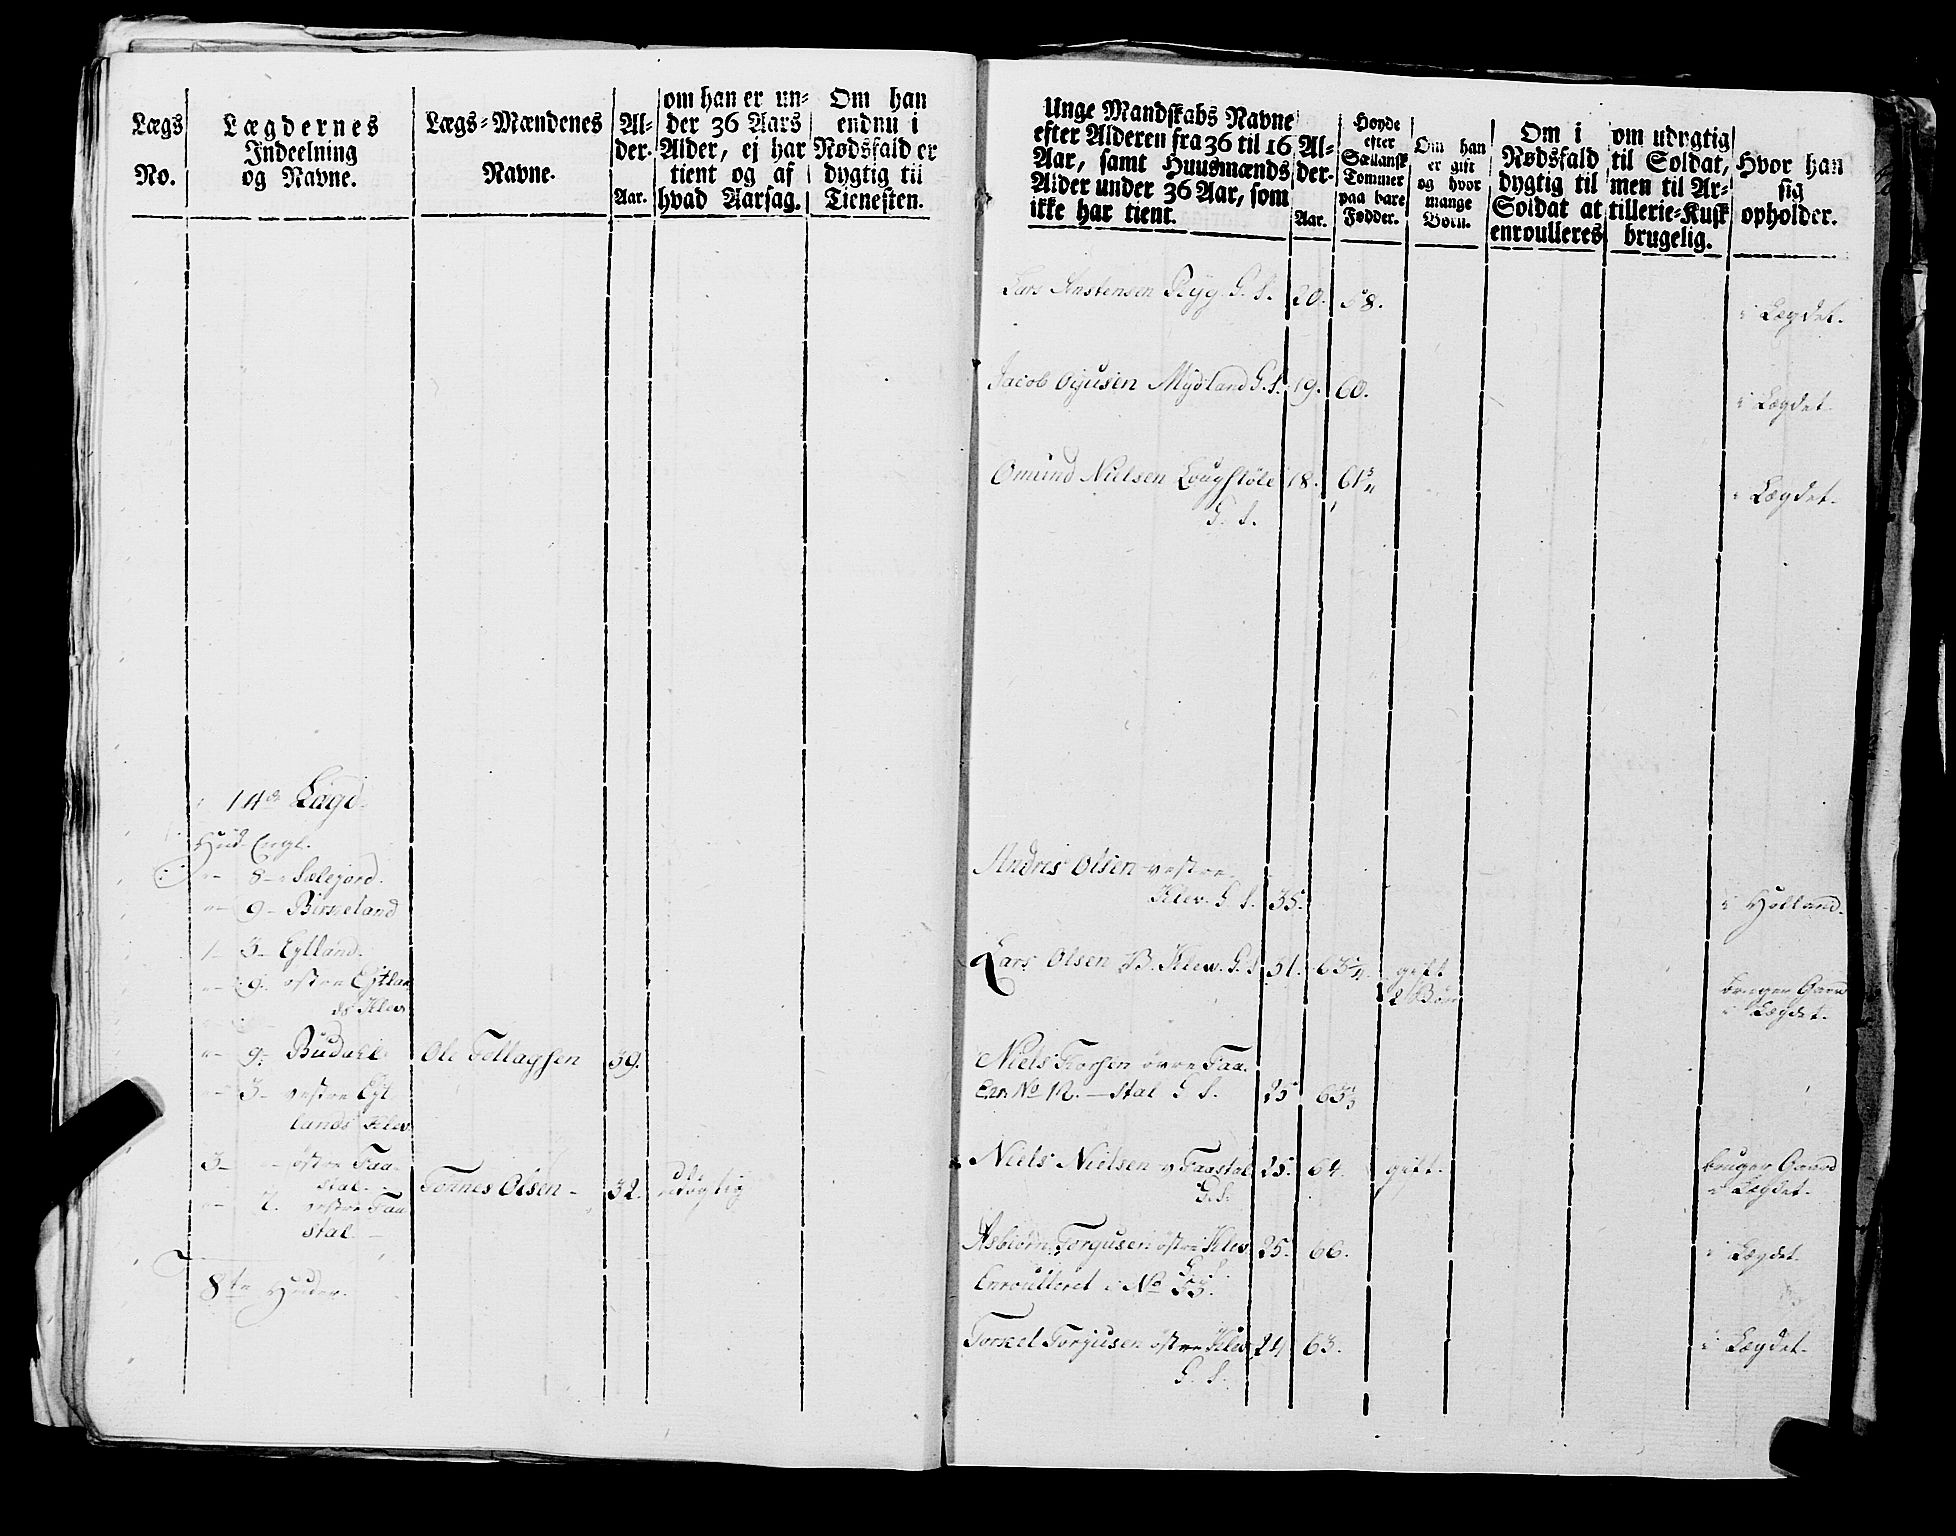 Lægs
No.
Lægdernes
Indeelning
og Navne.
Lægs-Mændenes
Navne.
Al-
der.
Aar.
om han er un-
der 36 Aars
Alder, ej har
tient og af
hvad Aarsag.
Om han
endnu i
Nødsfald er
dygtig til
Tienesten.
14de Lægd
Hud Engl.
8 Sælejord.
9 Birkeland
1 3 Eftland.
9 østre Eftlan
ds Klev
9 Budahl Ole Tollagsen 39.
3 vestre Eft
lands Klev
3 østre Faa
stal. Tønnes Olsen 32. udygtig
2. vestre Faa
stal.
8te Huder.
Unge Mandskabs Navne
efter Alderen fra 36 til 16
Aar, samt Huusmænds
Alder under 36 Aar, som
ikke har tient.
Al-
der.
Aar.
Høyde
efter
Sællansk
Tommer
paa bare
Fødder.
Om han
er gift
og hvor
mange
Børn.
Om i
Nødsfald
dygtig til
Soldat at
enroulleres
om udygtig
til Soldat,
men til Ar-
tillerie-Kusk
brugelig.
Hvor han
sig
opholder.
Lars Anstensen Ryg. G. S. 20. 58.
i Lægdet.
Jacob Ogusen Mydland G. S. 19. 60.
i Lægdet.
Omund Nielsen Lougstøle 18. 61 3/4
G. S.
i Lægdet.
Andres Olsen vestre
Klev. G S. 35.
i Holland.
Lars Olsen B. Klev. G. S 31. 63 1/4 gift
2 Børn
bruger Gaard
i Lægdet.
Niels Torsen øvre Faa
Enr. No 12. stal G S. 25 63 1/2
Niels Nielsen v Faastal 25. 64. gift.
G. S.
bruger Gaard
i Lægdet.
Asbiørn Torgusen østre Klev 25. 66.
G. S.
i Lægdet.
Enroulleret i No 33.
Torkel Torjusen østre Klev 24 63.
G. S.
i Lægdet.